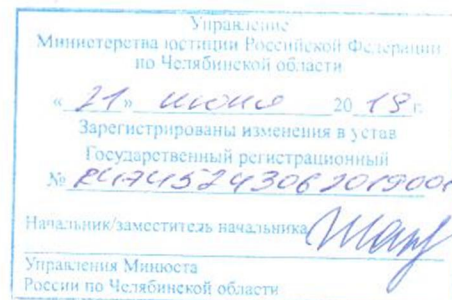 Управление
Министерства юстиции Российской Федерации
по Челябинской области
« 21 » июня 2019 г.
Зарегистрированы изменения в устав
Государственный регистрационный
№ RU745243062019001
Начальник/заместитель начальника
Управления Минюста
России по Челябинской области